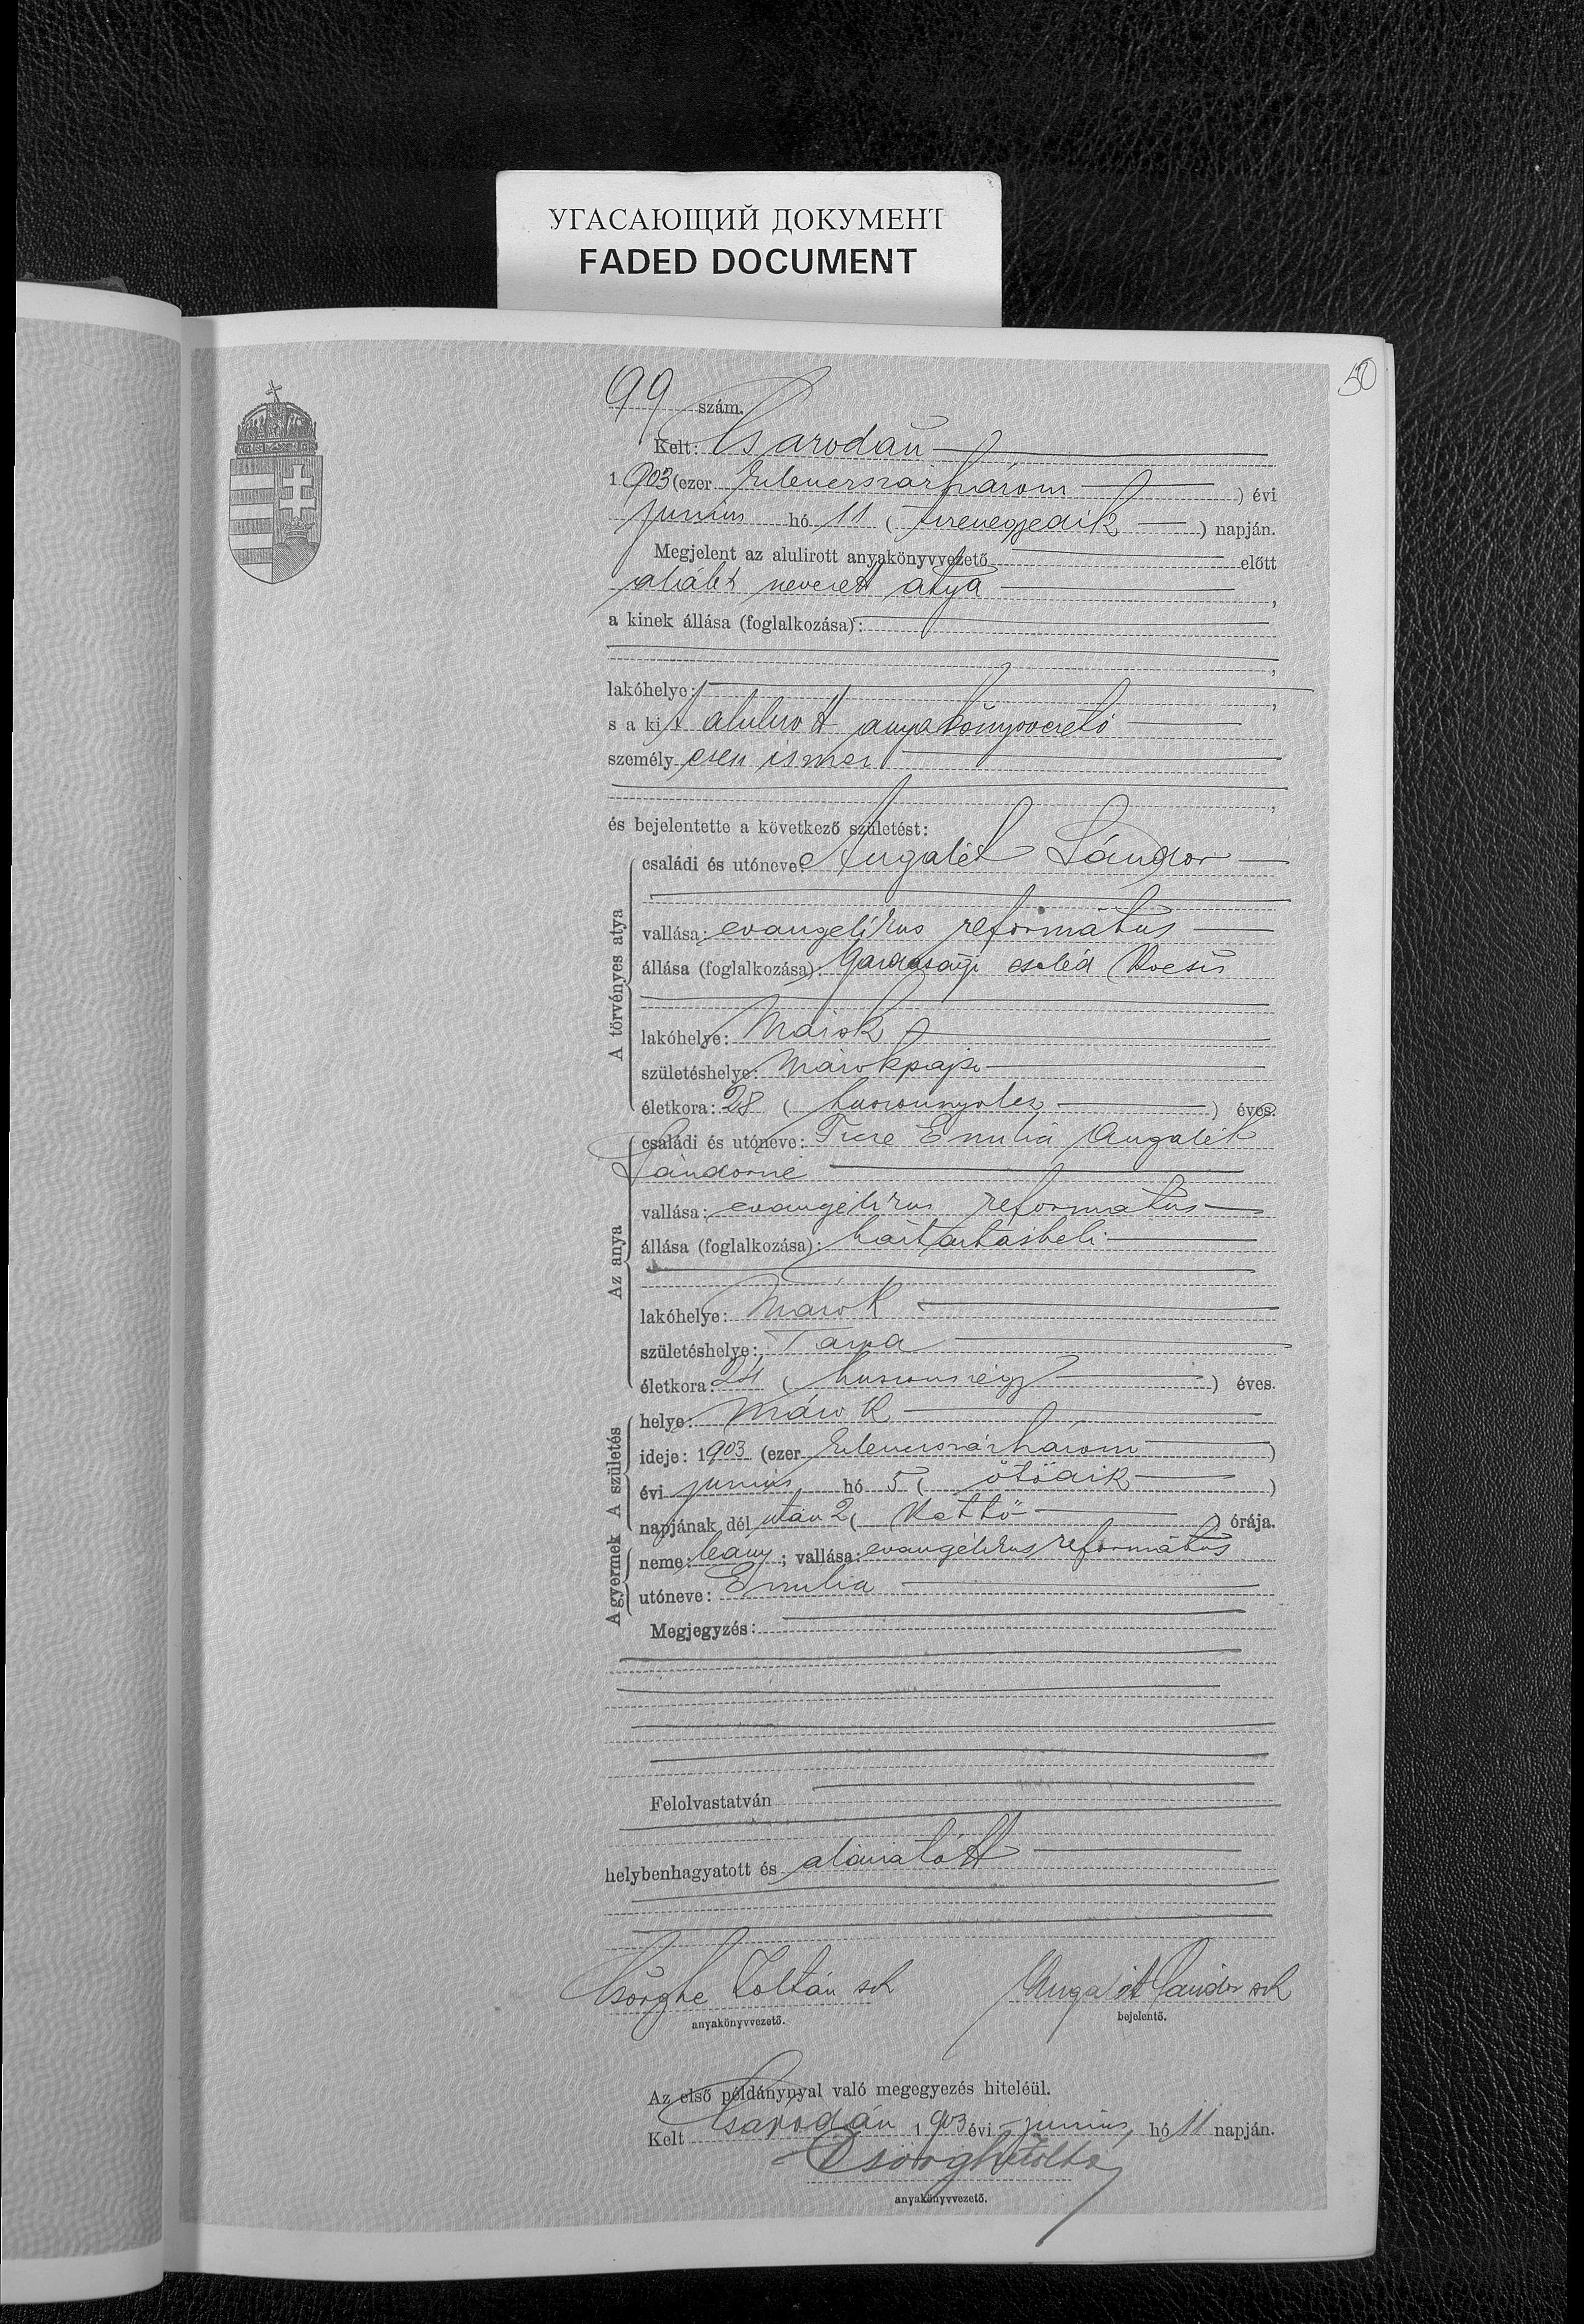 УГАСАЮЩИЙ ДОКУМЕНТ
FADED DOCUMENT
50
99 szám.
Kelt: Csarodán
1903 (ezer kilencszázhárom) évi
junius hó 11 (tizenegyedik) napján.
Megjelent az alulirott anyakönyvvezető előtt
alább nevezett atya,
a kinek állása (foglalkozása):
lakóhelye:
s a kit alulirott anyakönyvvezető
személyesen ismer
és bejelentette a következő születést:
A törvényes atya
családi és utóneve: Angalét Sándor
vallása: evangélikus református
állása (foglalkozása): gazdasági cseléd kocsis
lakóhelye: Márok
születéshelye: Márokpapi
életkora: 28 (huszonnyolcz) éves.
Az anya
családi és utóneve: Emilia Angalét
Sándorné
vallása: evangélikus református
állása (foglalkozása): háztartásbeli
lakóhelye: Márok
születéshelye: Tarpa
életkora: 24 (huszonnégy) éves.
A születés
helye: Márok
ideje: 1903 (ezer kilencszázhárom)
évi junius hó 5 (ötödik)
napjának dél után 2 (kettő) órája.
A gyermek
neme: leány; vallása: evangélikus református
utóneve: Emilia
Megjegyzés:
Felolvastatván
helybenhagyatott és aláiratott
Csörghe Zoltán sk Angalét Sándor sk
anyakönyvvezető. bejelentő.
Az első példánynyal való megegyezés hiteléül.
Kelt Csarodán 1903 évi junius hó 11 napján.
Csörghe Zoltán
anyakönyvvezető.